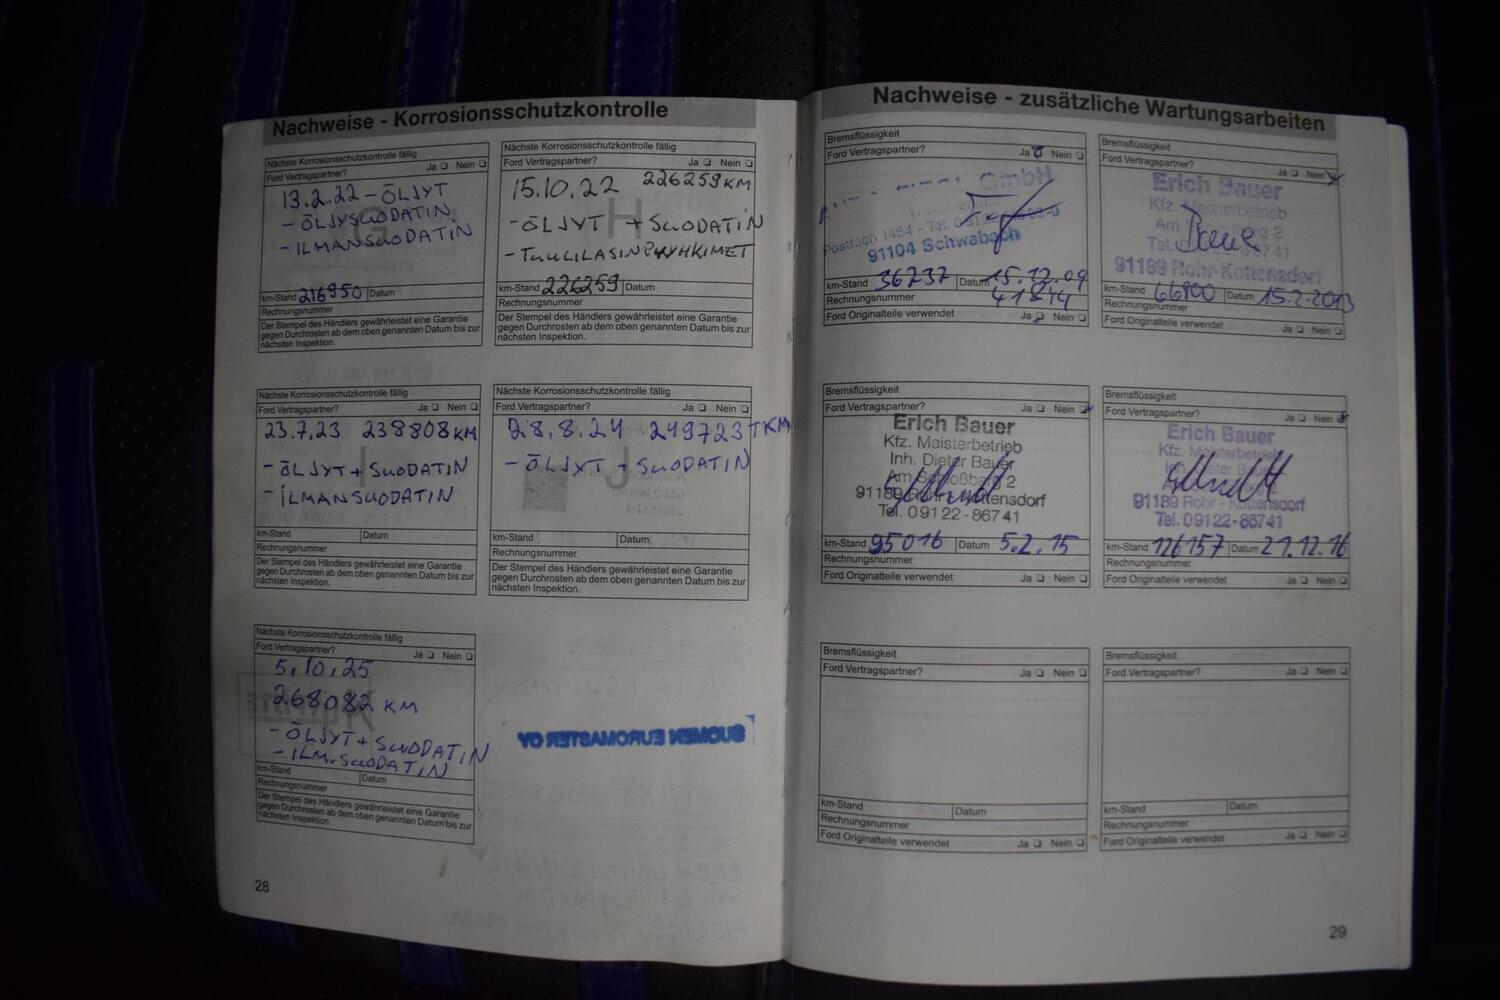 Nachweise - Korrosionsschutzkontrolle
Nächste Korrosionsschutzkontrolle fällig
Ford Vertragspartner? Ja Nein
13.2.22 - ÖLJYT
- ÖLJYSUODATIN
- ILMANSUODATIN
km-Stand 216950 Datum
Rechnungsnummer
Der Stempel des Händlers gewährleistet eine Garantie
gegen Durchrosten ab dem oben genannten Datum bis zur
nächsten Inspektion.
Nächste Korrosionsschutzkontrolle fällig
Ford Vertragspartner? Ja Nein
15.10.22 226259 KM
- ÖLJYT + SUODATIN
- TUULILASINPYYHKIMET
km-Stand 226259 Datum
Rechnungsnummer
Der Stempel des Händlers gewährleistet eine Garantie
gegen Durchrosten ab dem oben genannten Datum bis zur
nächsten Inspektion.
Nächste Korrosionsschutzkontrolle fällig
Ford Vertragspartner? Ja Nein
23.7.23 238808 KM
- ÖLJYT + SUODATIN
- ILMANSUODATIN
km-Stand Datum
Rechnungsnummer
Der Stempel des Händlers gewährleistet eine Garantie
gegen Durchrosten ab dem oben genannten Datum bis zur
nächsten Inspektion.
Nächste Korrosionsschutzkontrolle fällig
Ford Vertragspartner? Ja Nein
28.8.24 249723 TKM
- ÖLJYT + SUODATIN
km-Stand Datum
Rechnungsnummer
Der Stempel des Händlers gewährleistet eine Garantie
gegen Durchrosten ab dem oben genannten Datum bis zur
nächsten Inspektion.
Nächste Korrosionsschutzkontrolle fällig
Ford Vertragspartner? Ja Nein
5.10.25
268082 KM
- ÖLJYT + SUODATIN
- ILM.SUODATIN
km-Stand Datum
Rechnungsnummer
Der Stempel des Händlers gewährleistet eine Garantie
gegen Durchrosten ab dem oben genannten Datum bis zur
nächsten Inspektion.
SUOMEN EUROMASTER OY
28
Nachweise - zusätzliche Wartungsarbeiten
Bremsflüssigkeit
Ford Vertragspartner? Ja Nein
GmbH
Postfach 1464 - Tel.
91104 Schwabach
km-Stand 36737 Datum 15.12.09
Rechnungsnummer 41844
Ford Originalteile verwendet Ja Nein
Bremsflüssigkeit
Ford Vertragspartner? Ja Nein
Erich Bauer
Kfz. Meisterbetrieb
Am 2
Tel. 09122-86741
91189 Rohr-Kottensdorf
km-Stand 66900 Datum 15-2-2013
Rechnungsnummer
Ford Originalteile verwendet Ja Nein
Bremsflüssigkeit
Ford Vertragspartner? Ja Nein
Erich Bauer
Kfz. Meisterbetrieb
Inh. Dieter Bauer
Am Schloßberg 2
91189 Rohr - Kottensdorf
Tel. 09122-86741
km-Stand 95016 Datum 5.2.15
Rechnungsnummer
Ford Originalteile verwendet Ja Nein
Bremsflüssigkeit
Ford Vertragspartner? Ja Nein
Erich Bauer
Kfz. Meisterbetrieb
91189 Rohr - Kottensdorf
Tel. 09122-86741
km-Stand 126157 Datum 21.12.16
Rechnungsnummer
Ford Originalteile verwendet Ja Nein
Bremsflüssigkeit
Ford Vertragspartner? Ja Nein
km-Stand Datum
Rechnungsnummer
Ford Originalteile verwendet Ja Nein
Bremsflüssigkeit
Ford Vertragspartner? Ja Nein
km-Stand Datum
Rechnungsnummer
Ford Originalteile verwendet Ja Nein
29